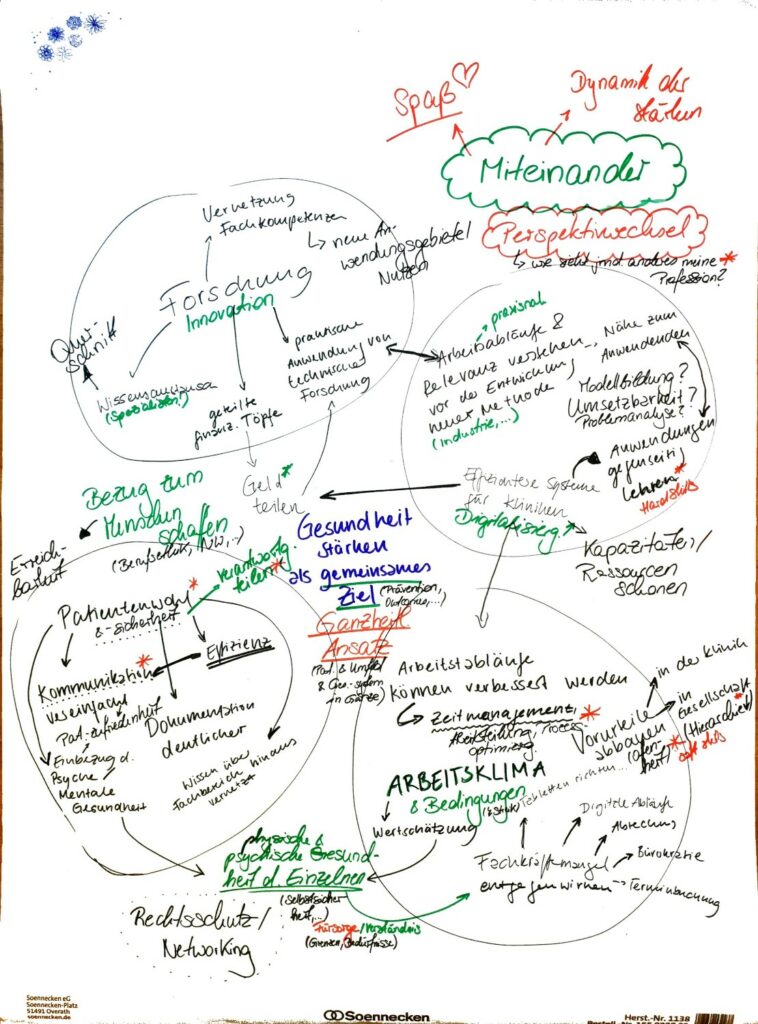 Spaß
Dynamik der
Stärken
Miteinander
Perspektivwechsel
↳ wie sieht jmd anderes meine *
Profession?
Vernetzung
Fachkompetenzen
↳ neue An-
wendungsgebiete/
Nutzen
Forschung
Innovation
Quer-
schnitt
Wissensaustausch
(Spezialisten!)
geteilte
finanz. Töpfe
praktische
Anwendung von
technischer
Forschung
praxisnah
Arbeitsabläufe &
Relevanz verstehen
vor der Entwicklung
neuer Methode
(Industrie,...)
Nähe zum
Anwendenden
Modellbildung?
Umsetzbarkeit?
Problemanalyse?
Anwendungen
gegenseitig
lehren *
Hardskills
Effizientere Systeme
für Kliniken
Digitalisierg.
Kapazitäten/
Ressourcen
schonen
Geld *
teilen
Bezug zum
Menschen
schaffen
(Berufsethik, NW,..)
Erreich-
barkeit
verantwortg.
teilen *
Gesundheit
stärken
als gemeinsames
Ziel (Prävention,
...)
Ganzheitl.
Ansatz
(Pat. & Umfeld
& Ges.-system
in Gänze)
Patientenwohl *
& -sicherheit
Effizienz
Kommunikation *
vereinfacht
Pat.-zufriedenheit
Einbezug d.
Psyche/
Mentale
Gesundheit
Dokumentation
deutlicher
Wissen über
Fachbereiche hinaus
vernetzt
Arbeitsabläufe
können verbessert werden
↳ Zeitmanagement *
Arbeitsteilung, Prozess-
optimierg.
Vorurteile
abbauen
(Offen-
heit) *
in der Klinik
in
Gesellschaft *
(Hierarchien)
soft skills
ARBEITSKLIMA
& Bedingungen
Tabletten richten...
Wertschätzung
Fachkräftemangel
entgegenwirken
Digitale Abläufe
Abrechng
Bürokratie
Terminbuchung
physische &
psychische Gesund-
heit d. Einzelnen
(Selbstsicher
heit,...)
Fürsorge/Verständnis
(Grenzen, Bedürfnisse)
Rechtsschutz/
Networking
Soennecken eG
Soennecken-Platz
51491 Overath
soennecken.de
Soennecken
Herst.-Nr. 1138